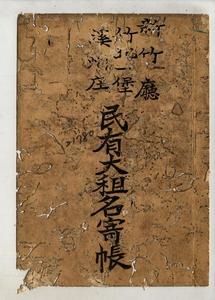 新竹廳
竹北一堡
溪州庄
民有大租名寄帳